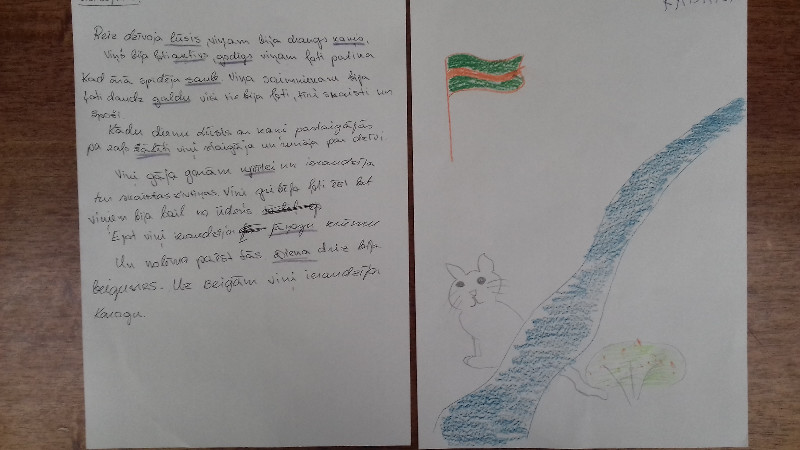 Reiz dzīvoja lūsis, viņam bija draugs kaķis.
Viņš bija ļoti aktīvs, godīgs viņam ļoti patika
Kad ārā spīdēja saule Viņa saimniekam bija
ļoti daudz galdu visi tie bija ļoti, tīri skaisti un
spoži.
Kādu dienu Lūsis ar kaķi pastaigājās
pa zaļo viņi staigāja un runāja par dzīvi
Viņi gāja garām upītei un ieraudzīja
tur skaistas zivtiņas. Viņi gribēja ļoti ēst bet
viņiem bija bail no ūdens
Ejot viņi ieraudzīja krūmu
Un nolēma palikt tās diena drīz bija
beigusies. Uz beigām viņi ieraudzīja
Karogu.